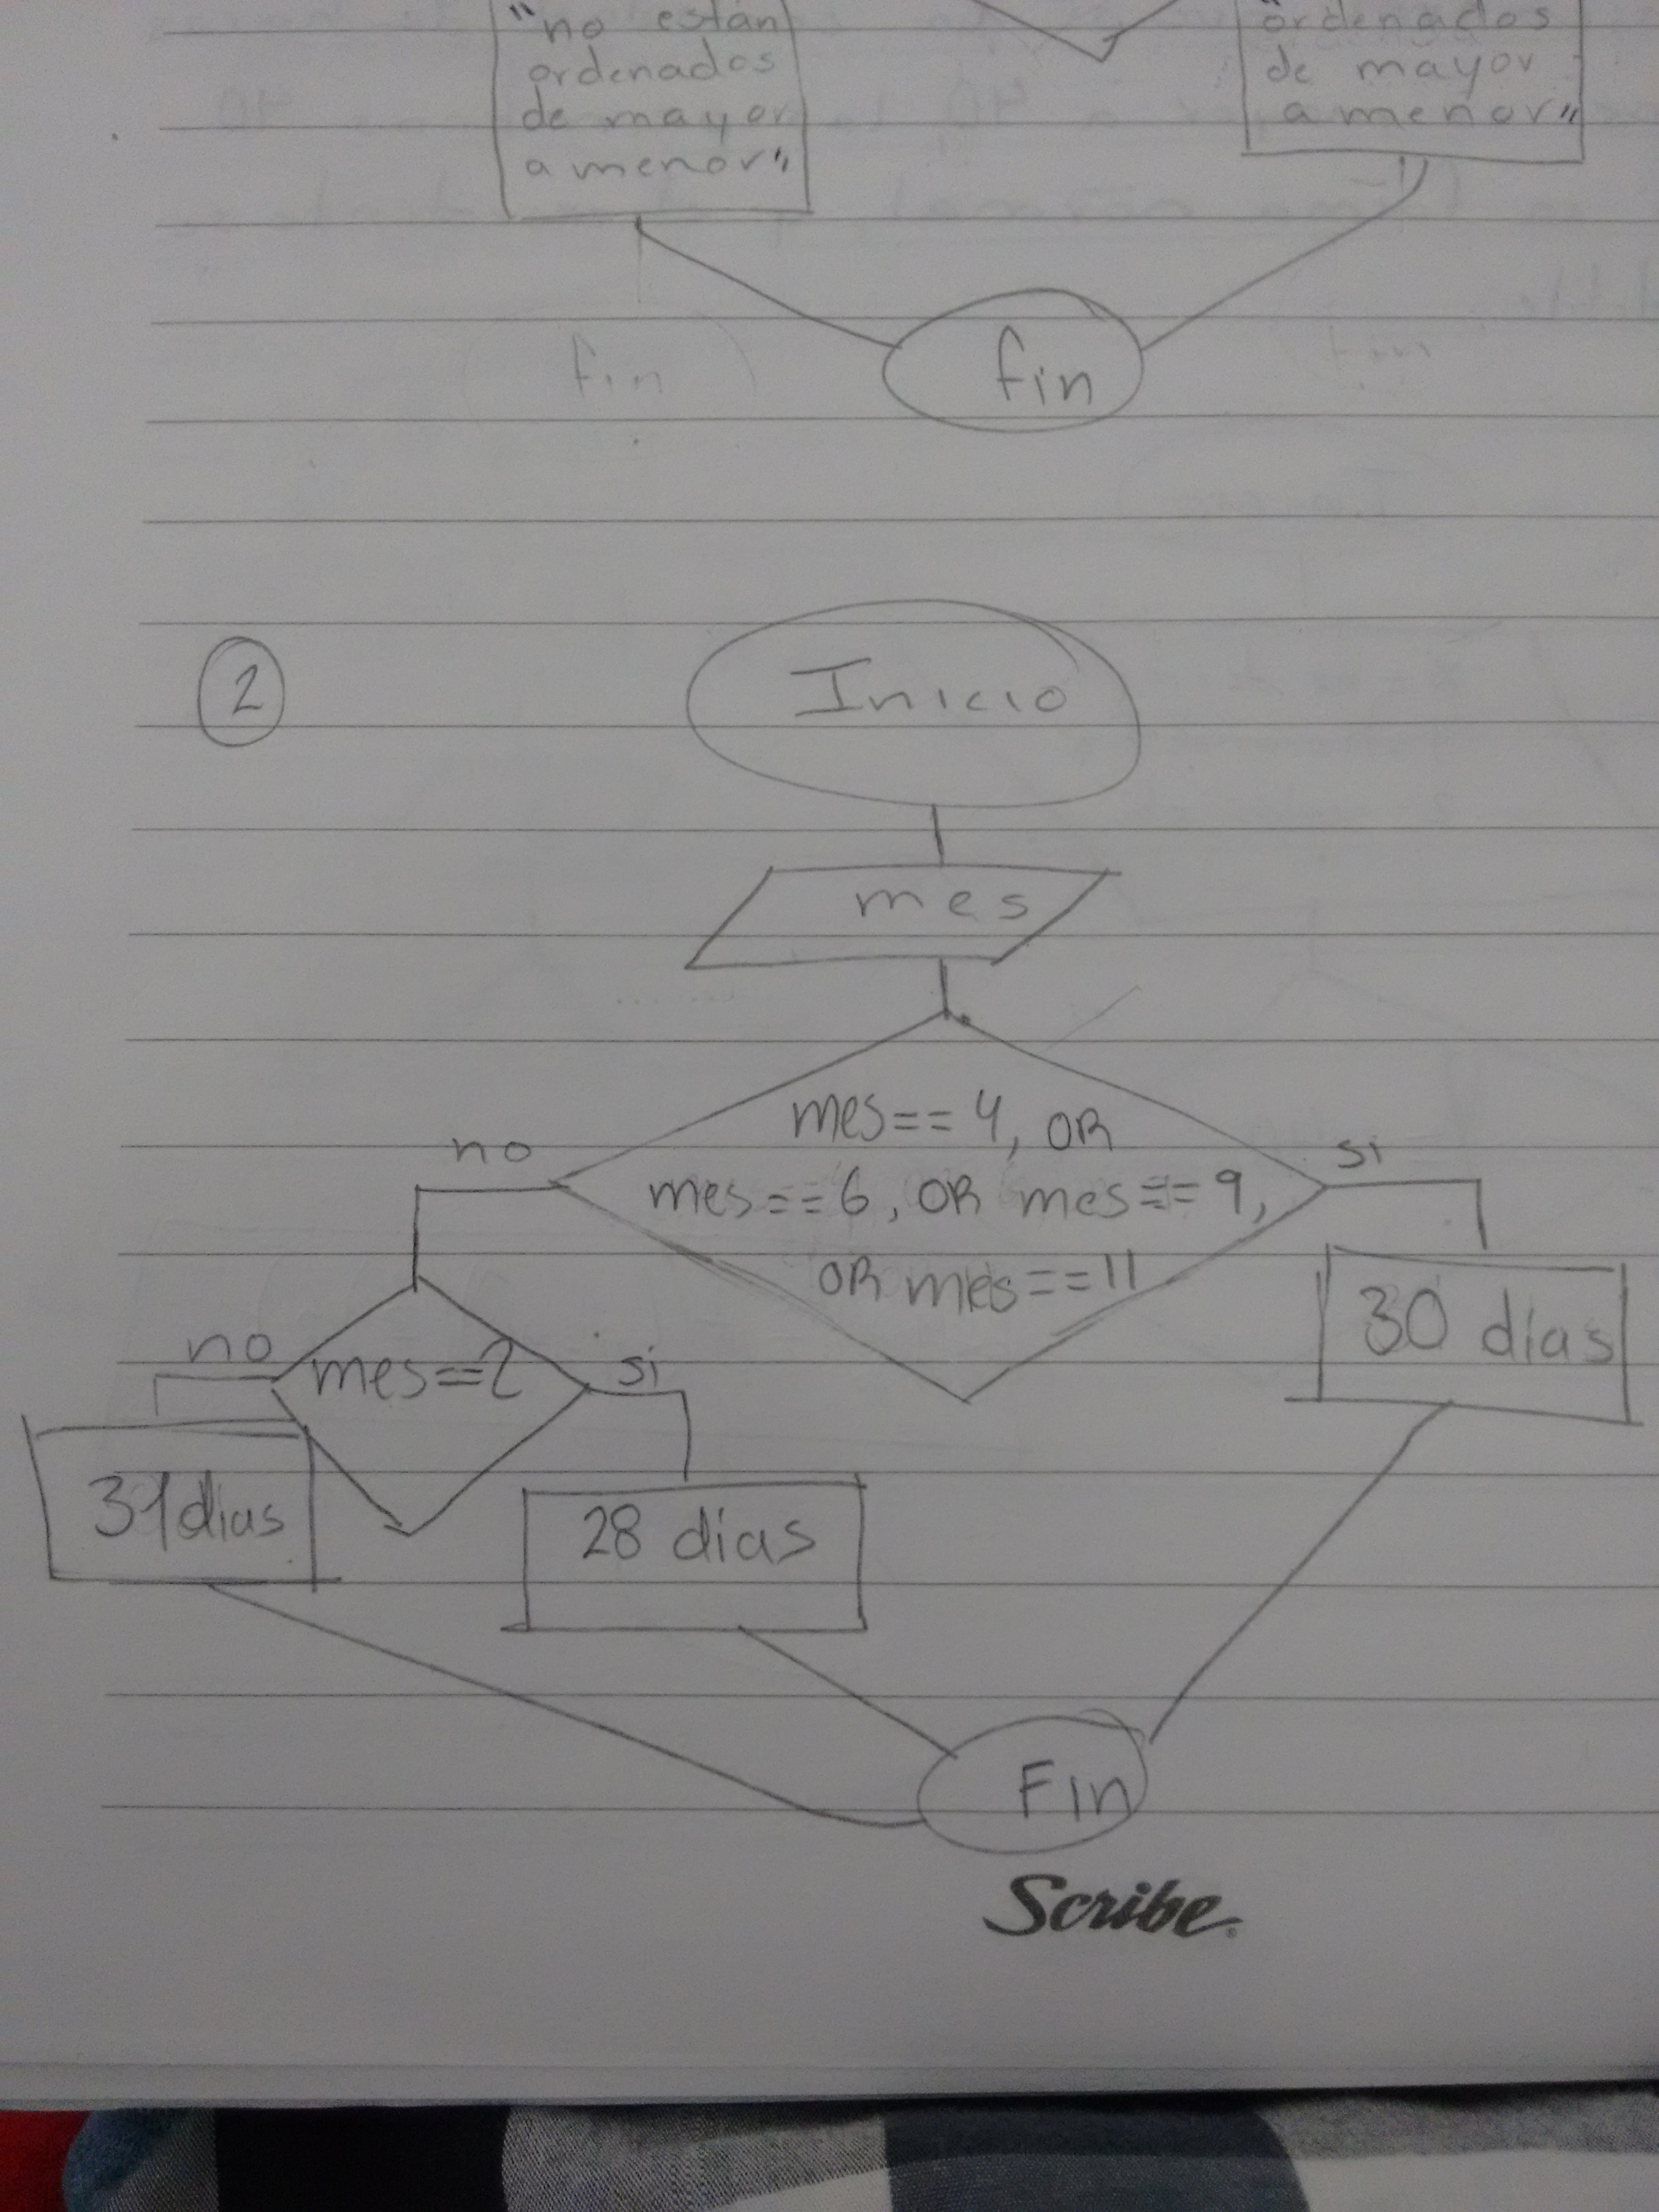 "no están
ordenados
de mayor
a menor"
ordenados
de mayor
a menor"
fin
fin
2
Inicio
mes
mes== 4, OR
mes==6, OR mes==9,
OR mes==11
no
si
30 dias
no
mes==2
si
31dias
28 dias
Fin
Scribe